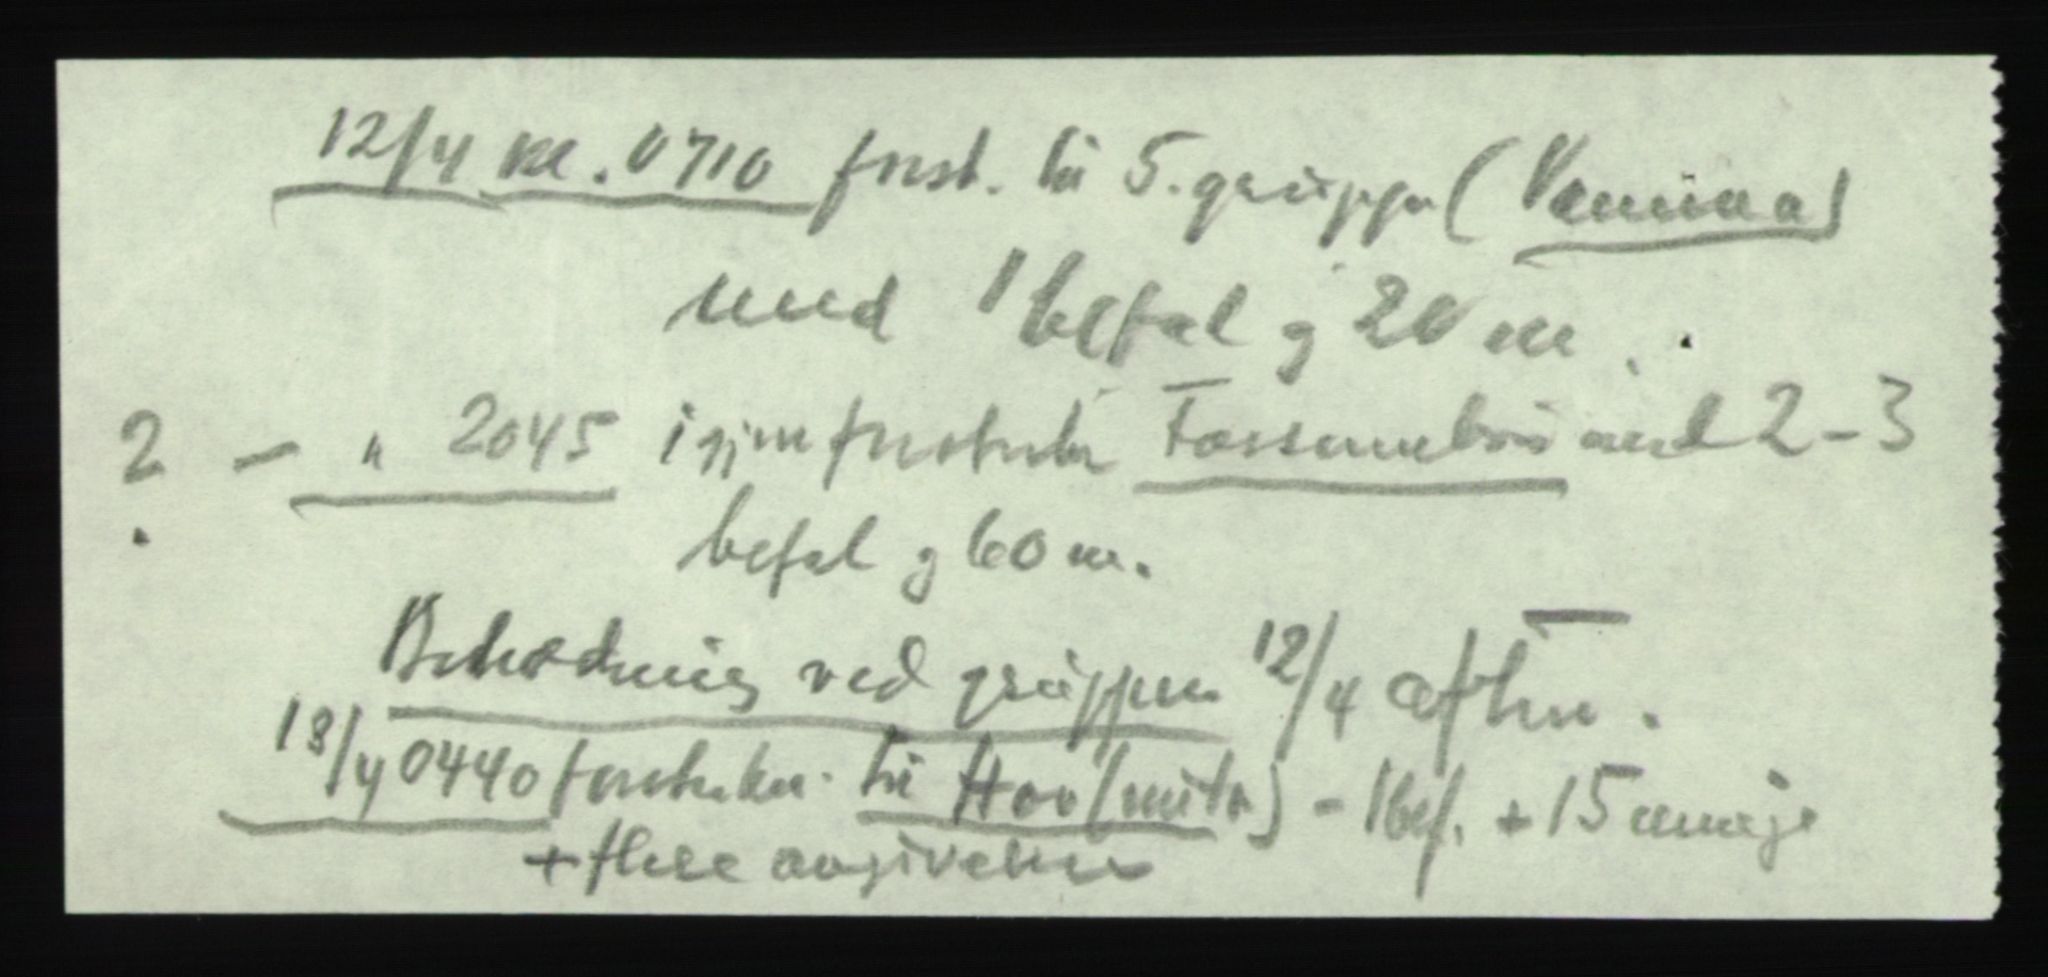 12/4 kl. 0710 forst. til 5. gruppe (
med 1 befal g 20 m.
? - " 2045 igjen forsterket Fossumbro med 2-3
befal g 60 m.
Beredning ved gruppen 12/4 aften.
13/4 0440 forsterkn. til Hov (mitr) - 1 bef. + 15 menige
+ flere angivelser